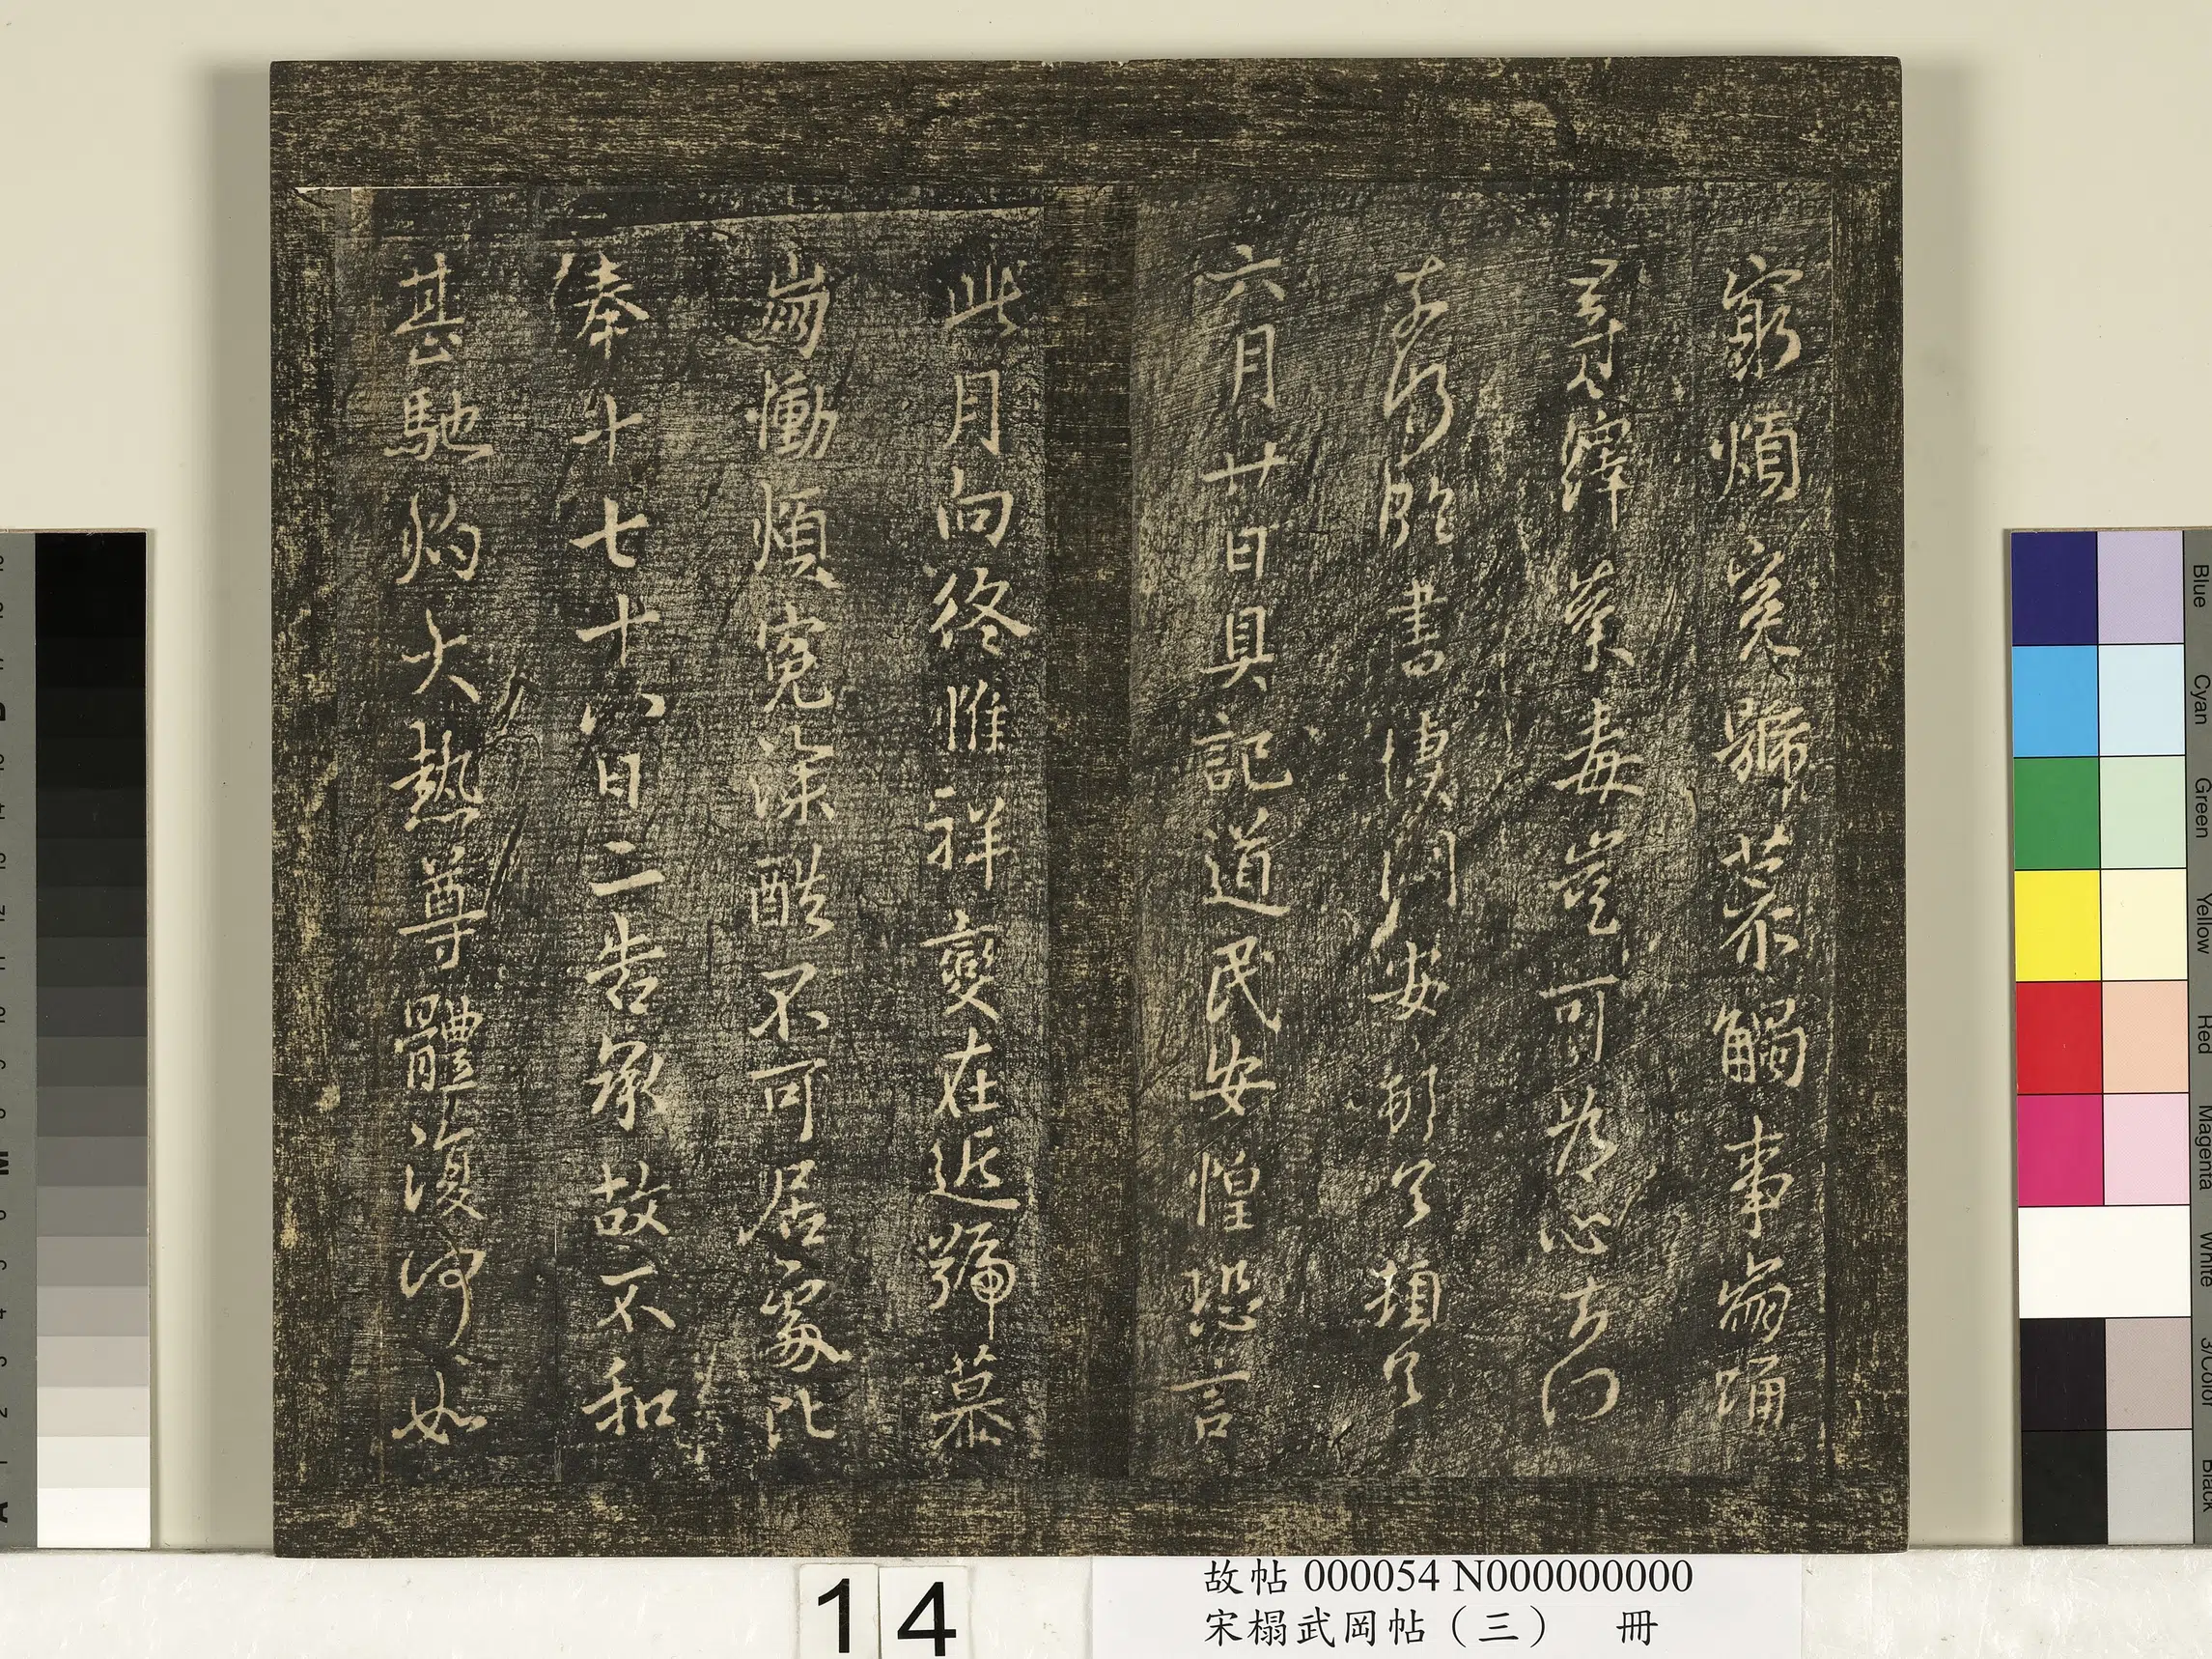 窮煩冤號慕觸事崩踴
尋繹荼毒豈可為心奈何
奈何臨書悽悶安頓首頓首
六月廿日具記道民安惶恐言
此月向終惟祥變在近號慕
崩慟煩冤深酷不可居處比
奉十七十八日二告承故不和
甚馳灼大熱尊體復何如
14
故帖 000054 N000000000
宋榻武岡帖（三） 冊
Blue
Cyan
Green
Yellow
Red
Magenta
White
3/Color
Black